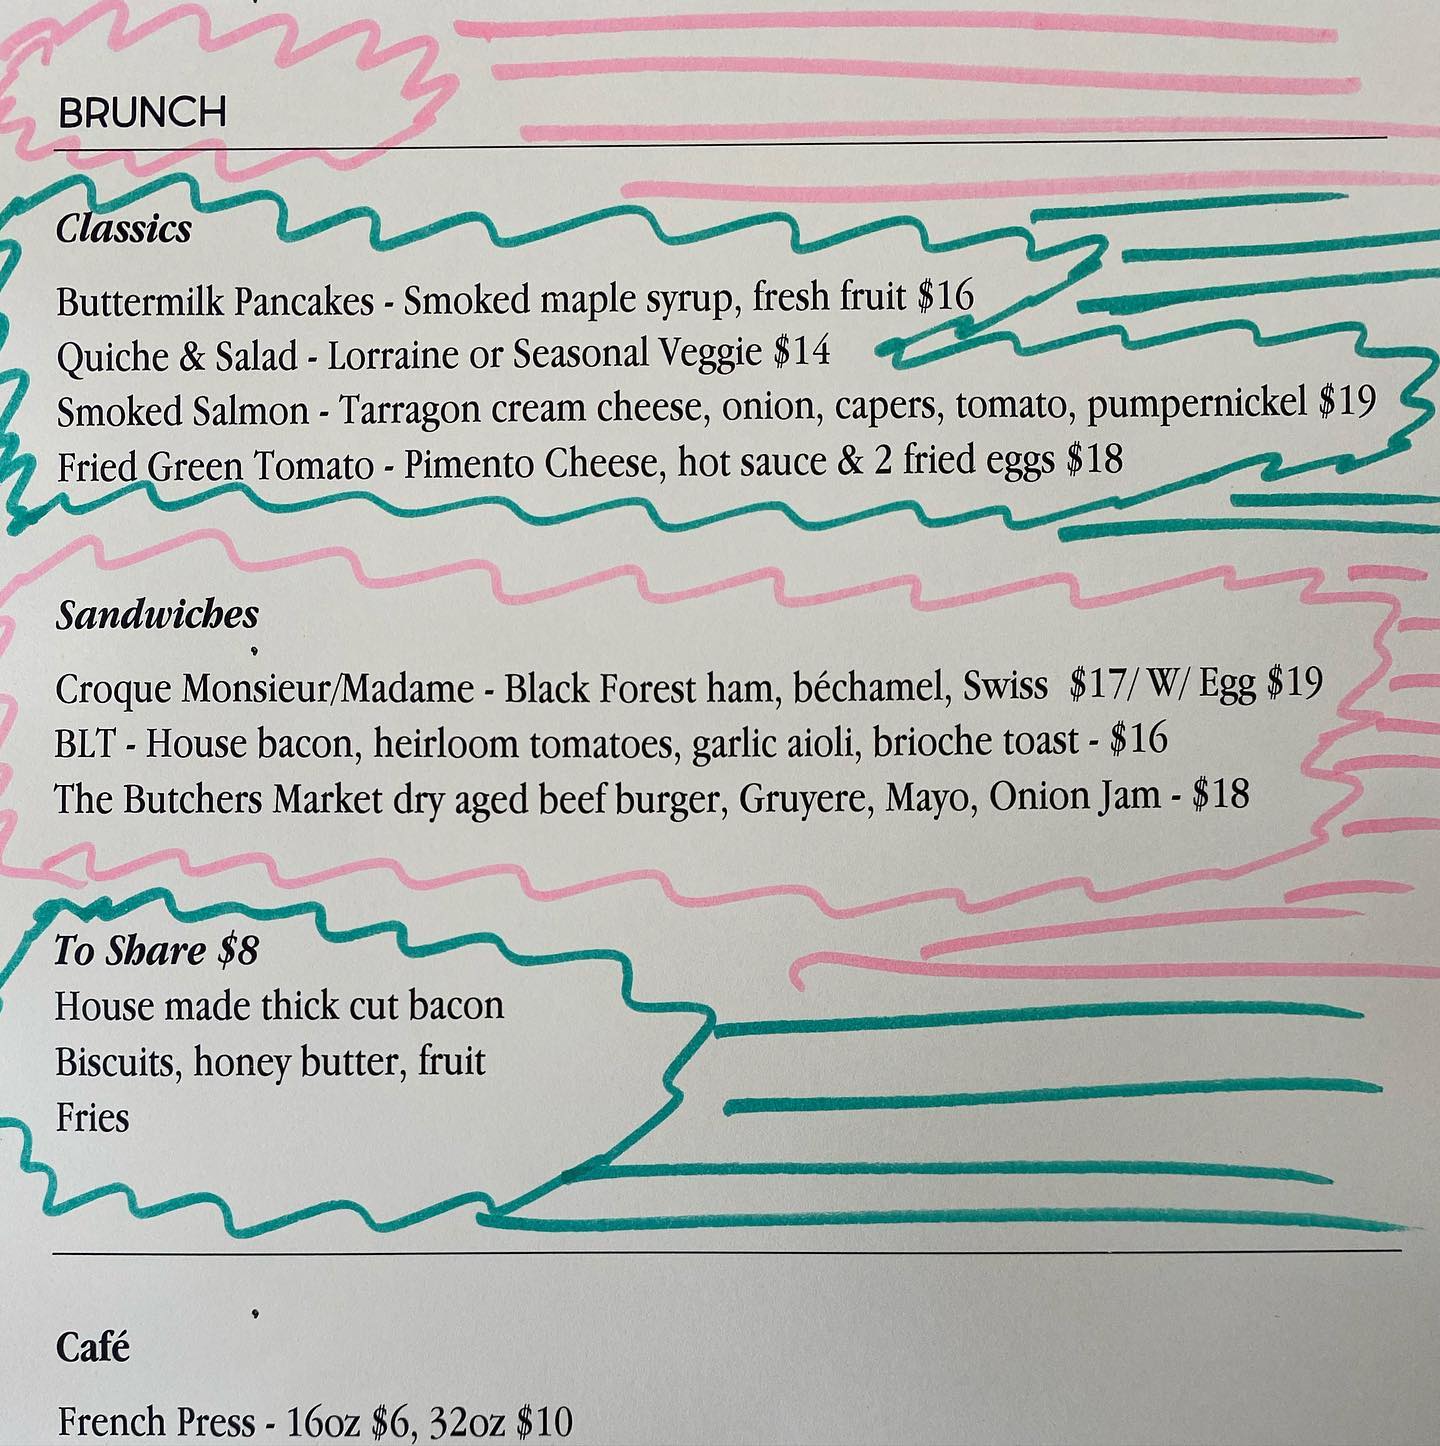 BRUNCH
Classics
Buttermilk Pancakes - Smoked maple syrup, fresh fruit $16
Quiche & Salad - Lorraine or Seasonal Veggie $14
Smoked Salmon - Tarragon cream cheese, onion, capers, tomato, pumpernickel $19
Fried Green Tomato - Pimento Cheese, hot sauce & 2 fried eggs $18
Sandwiches
Croque Monsieur/Madame - Black Forest ham, béchamel, Swiss $17/ W/ Egg $19
BLT - House bacon, heirloom tomatoes, garlic aioli, brioche toast - $16
The Butchers Market dry aged beef burger, Gruyere, Mayo, Onion Jam - $18
To Share $8
House made thick cut bacon
Biscuits, honey butter, fruit
Fries
Café
French Press - 16oz $6, 32oz $10